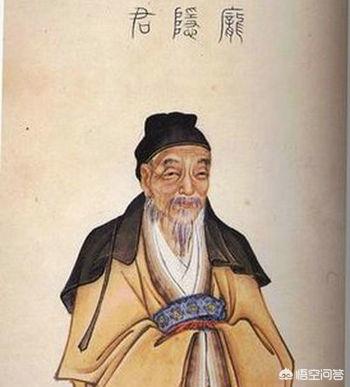 龐隱君
悟空问答